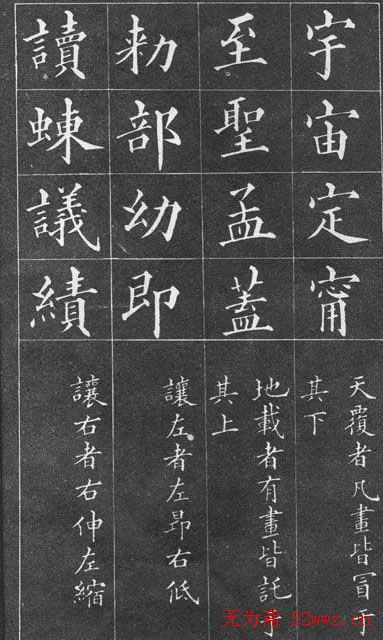 宇宙定甯
天覆者凡畫皆冒于
其下
至聖孟蓋
地載者有畫皆託于
其上
勅部幼即
讓左者左昂右低
讀蝀議績
讓右者右伸左縮
无为斋 52wwz.cn